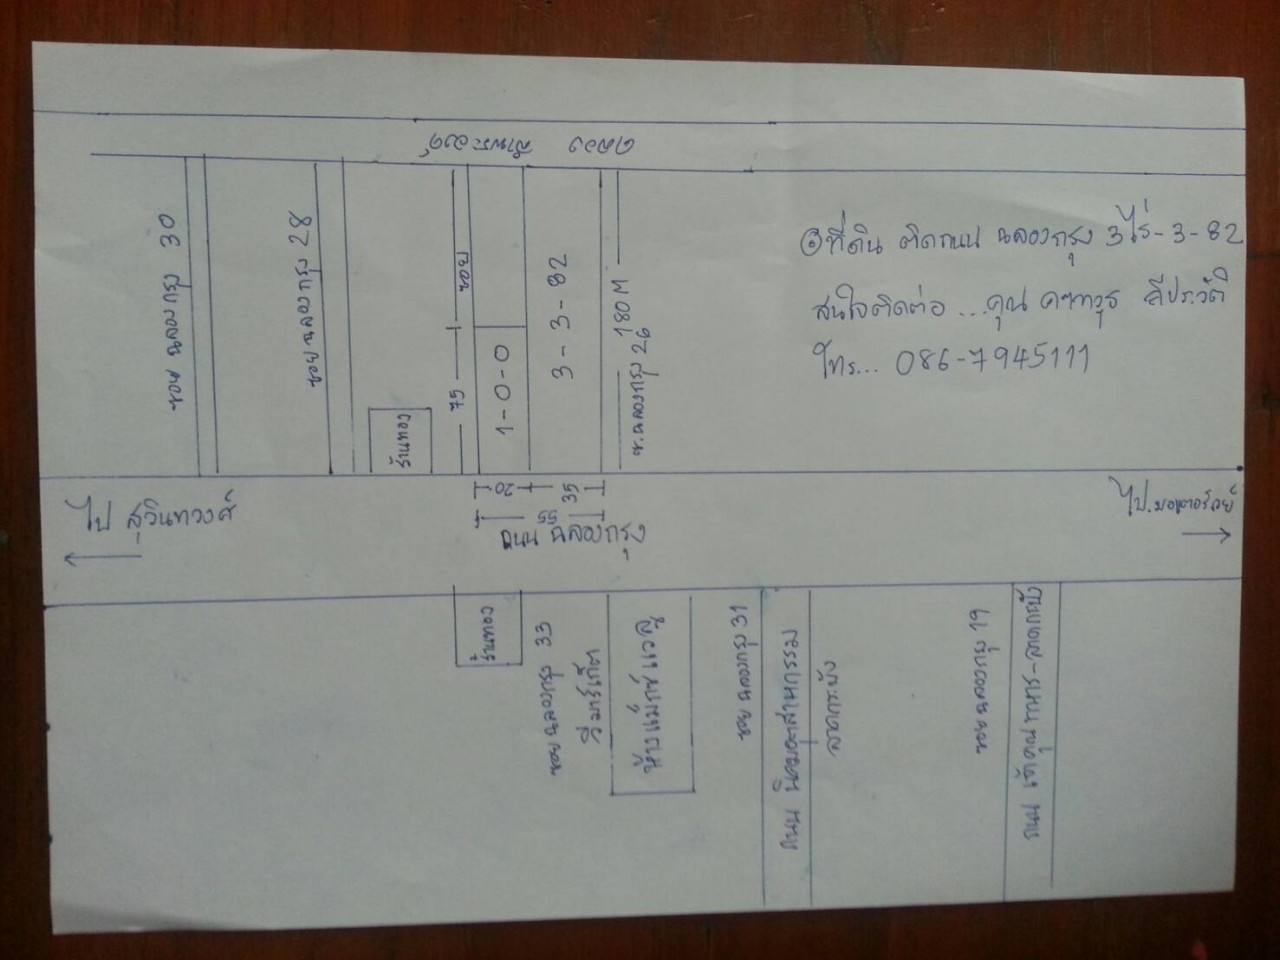 คลอง
ซอย ฉลองกรุง 30
ซอย ฉลองกรุง 28
ร้านทอง
75
ซอย
1-0-0
3-3-82
180 M
ซ.ฉลองกรุง 26
ที่ดิน ติดถนน ฉลองกรุง 3ไร่-3-82
สนใจติดต่อ ... คุณ
โทร... 086-7945111
20
35
55
ถนน ฉลองกรุง
ไป สุวินทวงศ์
ไป.มอเตอร์เวย์
ร้านทอง
ซอย ฉลองกรุง 33
วีมาร์เก็ต
ห้างแม็กซ์แวลู
ซอย ฉลองกรุง 31
ถนน นิคมอุตสาหกรรม
ลาดกระบัง
ซอย ฉลองกรุง 19
ถนน เจ้าคุณทหาร-ลาดกระบัง